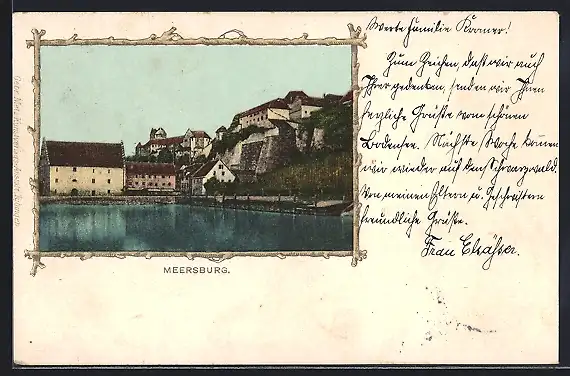 Werte Familie Kromer!
Zum Zeichen, daß wir auch
Ihrer gedenken, senden wir Ihnen
herzliche Grüße vom schönen
Bodensee. Nächste Woche können
wir wieder auf den Schwarzwald.
Von meinen Eltern u. Geschwistern
freundliche Grüße.
Frau Elsässer.
MEERSBURG.